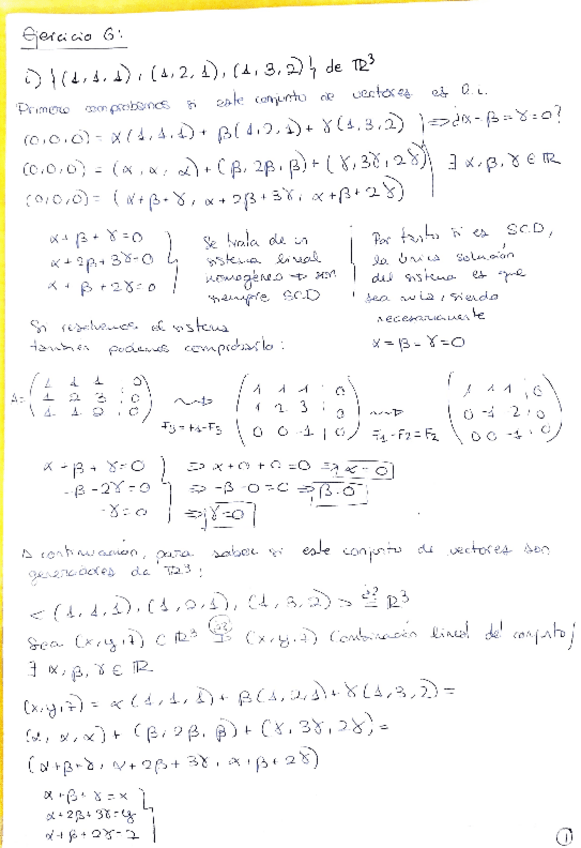 Ejercicio 6:
i) {(1,1,1), (1,2,1), (1,3,2)} de ℝ³
Primero comprobamos si este conjunto de vectores es l.i.
(0,0,0) = α(1,1,1) + β(1,2,1) + γ(1,3,2) ⇒ ¿α=β=γ=0?
(0,0,0) = (α, α, α) + (β, 2β, β) + (γ, 3γ, 2γ) ∃ α, β, γ ∈ ℝ
(0,0,0) = (α+β+γ, α+2β+3γ, α+β+2γ)
α+β+γ=0
α+2β+3γ=0
α+β+2γ=0
Se trata de un
sistema lineal
homogéneo → son
siempre SCD
Por tanto si es SCD,
la única solución
del sistema es que
sea nula, siendo
necesariamente
α=β=γ=0
Si resolvemos el sistema
también podemos comprobarlo:
A= (1 1 1 ¦ 0
1 2 3 ¦ 0
1 1 2 ¦ 0)
F3=F1-F3
(1 1 1 ¦ 0
1 2 3 ¦ 0
0 0 -1 ¦ 0)
F1-F2=F2
(1 1 1 ¦ 0
0 -1 2 ¦ 0
0 0 -1 ¦ 0)
α+β+γ=0 ⇒ α+0+0=0 ⇒ α=0
-β-2γ=0 ⇒ -β-0=0 ⇒ β=0
-γ=0 ⇒ γ=0
A continuación, para saber si este conjunto de vectores son
generadores de ℝ³:
<(1,1,1), (1,2,1), (1,3,2)> =¿? ℝ³
Sea (x,y,z) ⊂ ℝ³ ⇒¿? (x,y,z) Combinación lineal del conjunto /
∃ α, β, γ ∈ ℝ
(x,y,z) = α(1,1,1) + β(1,2,1) + γ(1,3,2) =
(α, α, α) + (β, 2β, β) + (γ, 3γ, 2γ) =
(α+β+γ, α+2β+3γ, α+β+2γ)
α+β+γ=x
α+2β+3γ=y
α+β+2γ=z
1